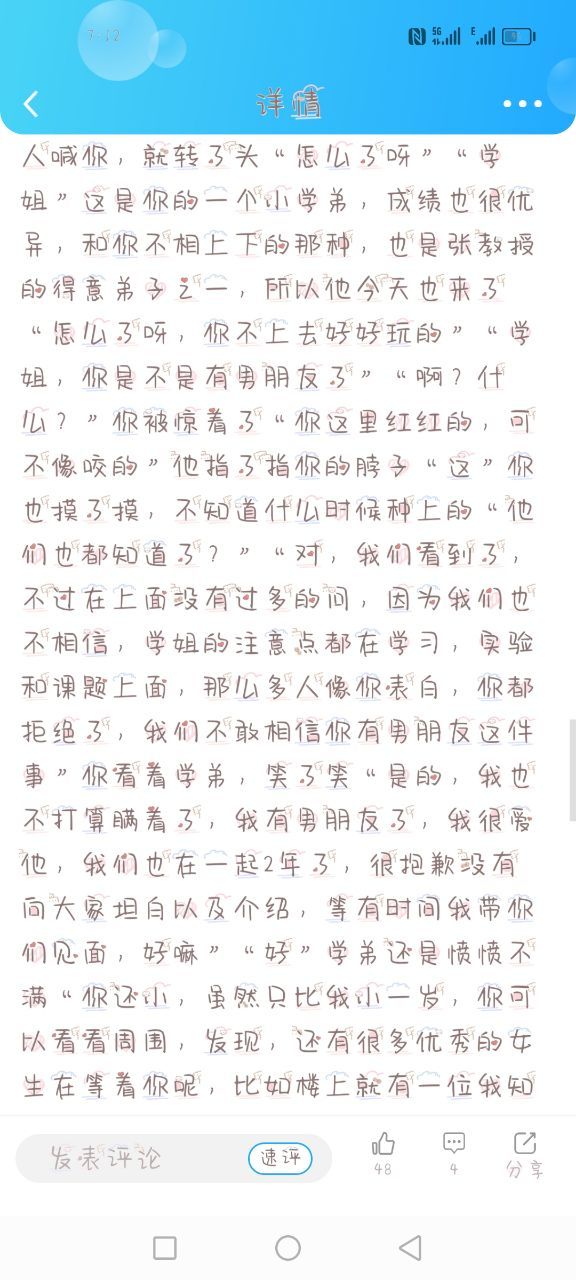 7:12
5G
E
详情
人喊你，就转了头“怎么了呀”“学
姐”这是你的一个小学弟，成绩也很优
异，和你不相上下的那种，也是张教授
的得意弟子之一，所以他今天也来了
“怎么了呀，你不上去好好玩的”“学
姐，你是不是有男朋友了”“啊？什
么？”你被惊着了“你这里红红的，可
不像咬的”他指了指你的脖子“这”你
也摸了摸，不知道什么时候种上的“他
们也都知道了？”“对，我们看到了，
不过在上面没有过多的问，因为我们也
不相信，学姐的注意点都在学习，实验
和课题上面，那么多人像你表白，你都
拒绝了，我们不敢相信你有男朋友这件
事”你看着学弟，笑了笑“是的，我也
不打算瞒着了，我有男朋友了，我很爱
他，我们也在一起2年了，很抱歉没有
向大家坦白以及介绍，等有时间我带你
们见面，好嘛”“好”学弟还是愤愤不
满“你还小，虽然只比我小一岁，你可
以看看周围，发现，还有很多优秀的女
生在等着你呢，比如楼上就有一位我知
发表评论 速评 48 4 分享